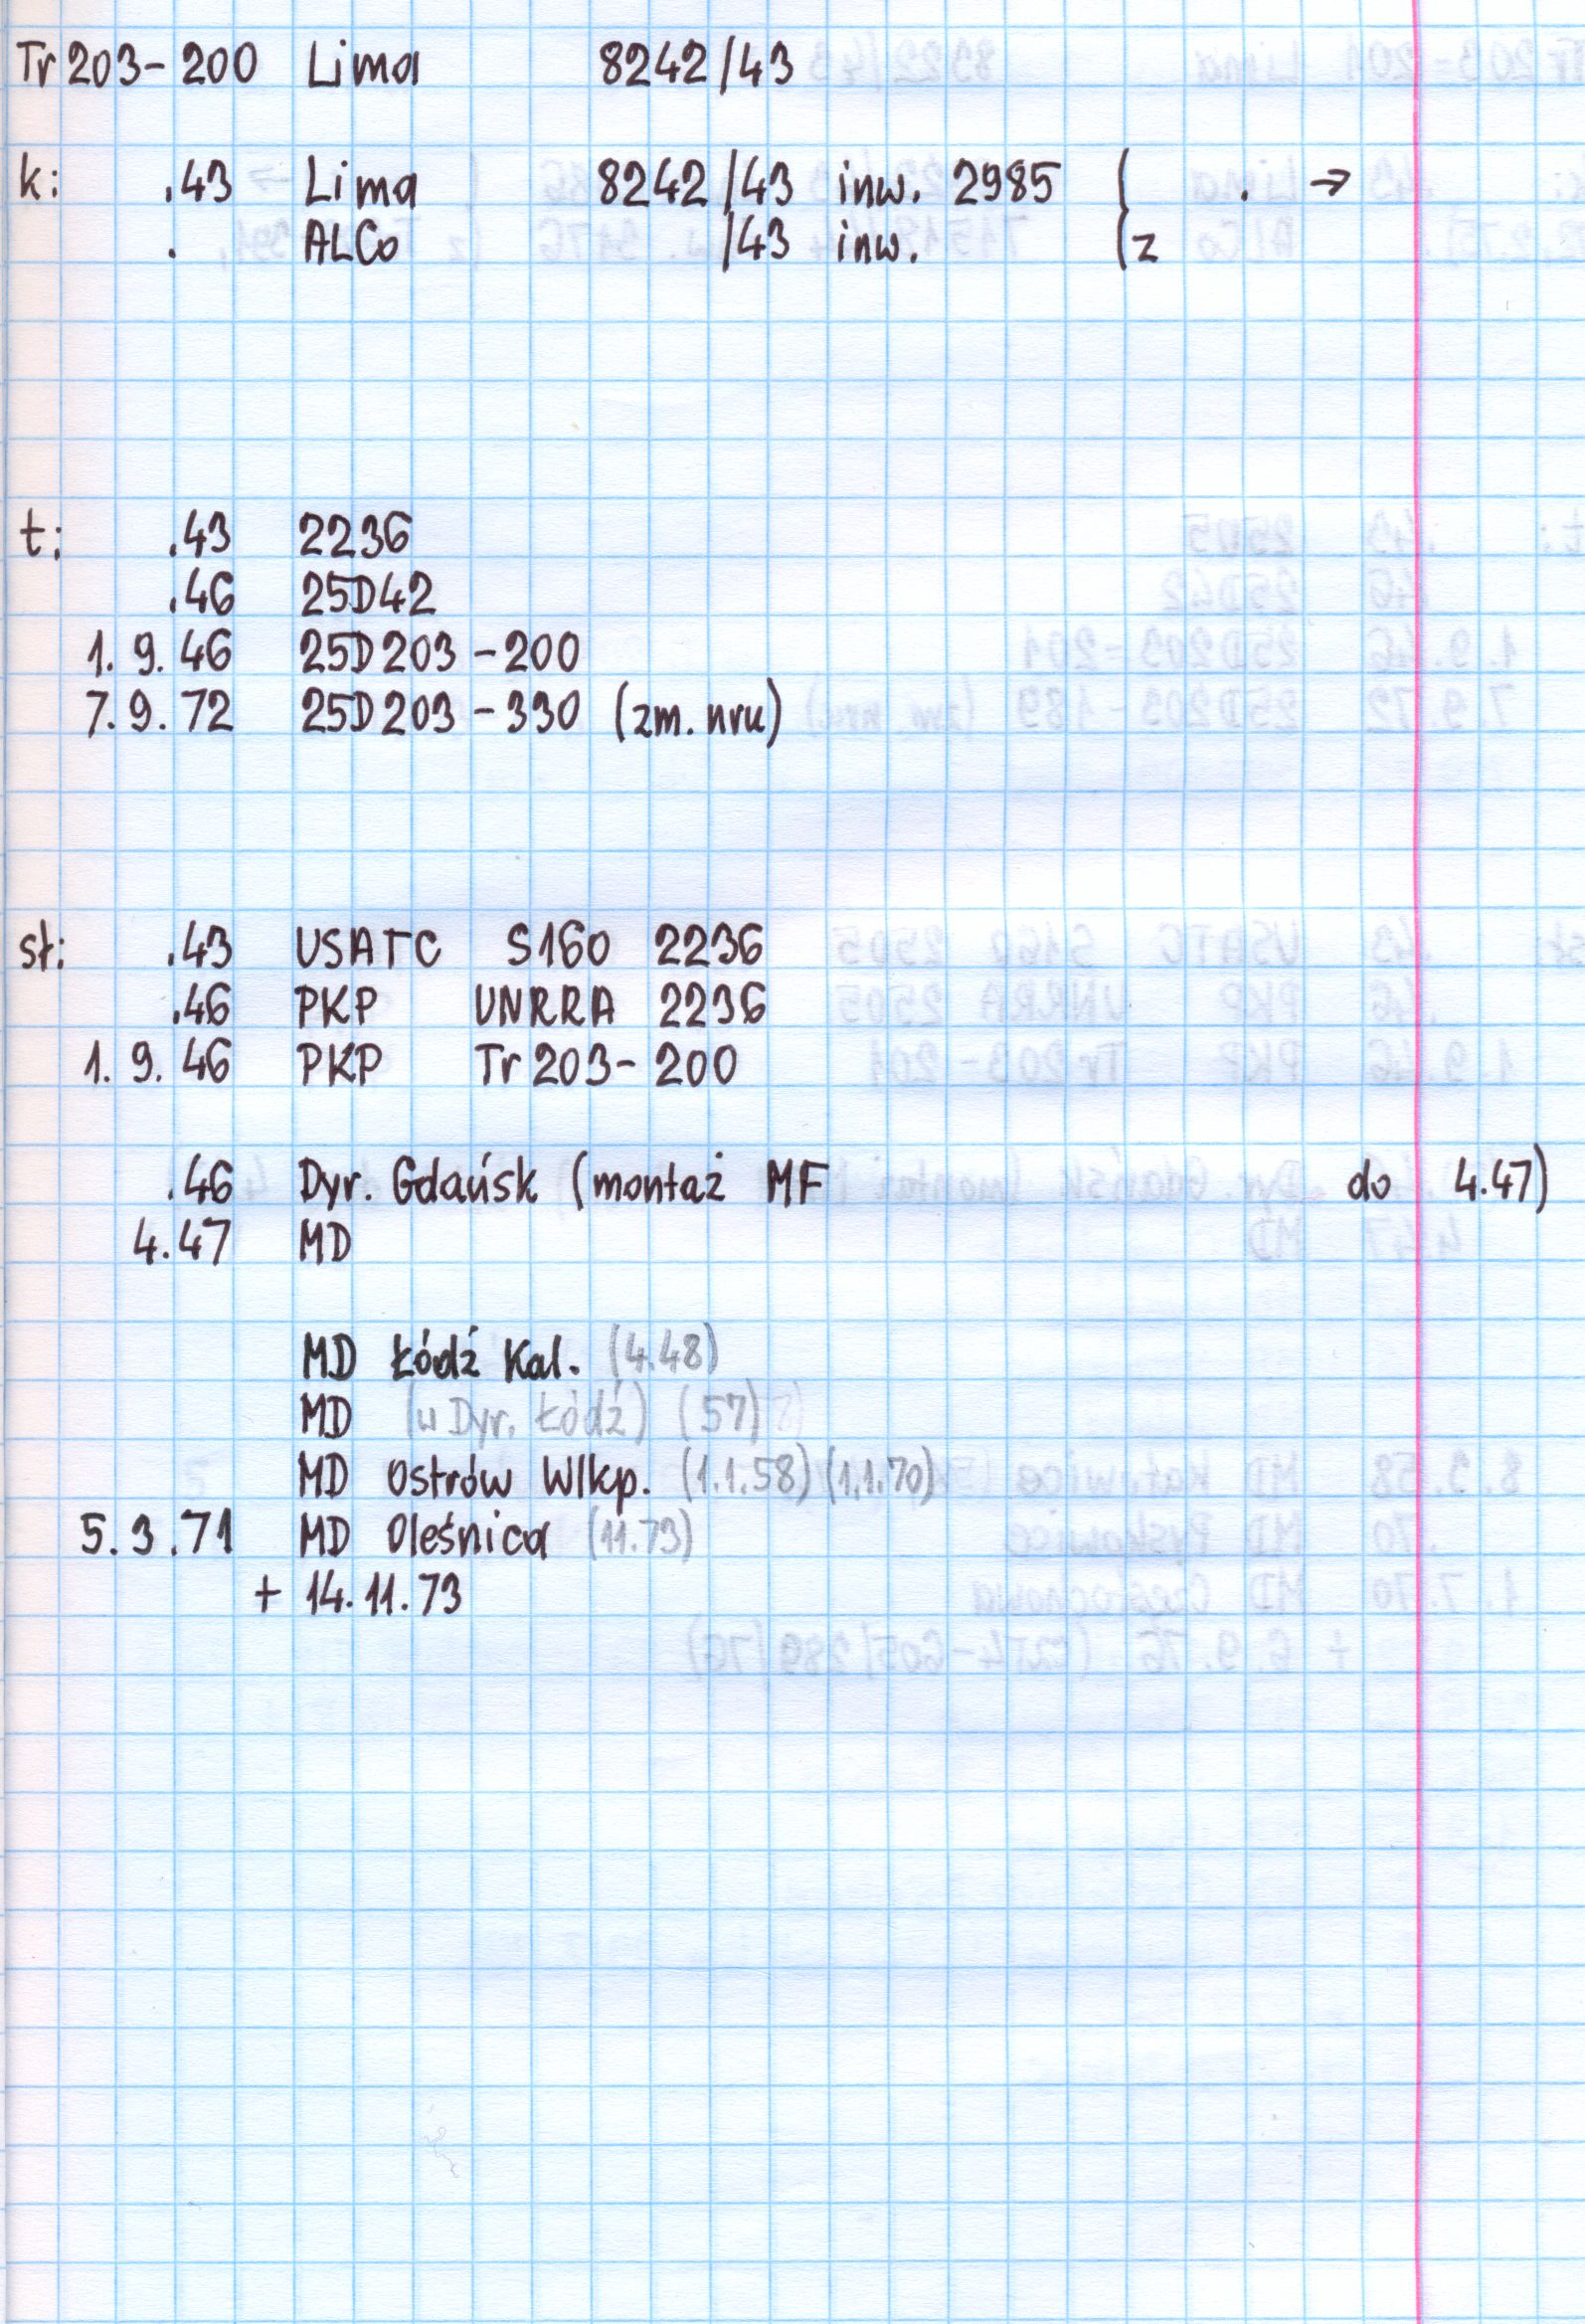 Tr 203-200 Lima 8242/43
k: .43 Lima 8242/43 inw. 2985 ( . →
. ALCo /43 inw. (z
t: .43 2236
.46 25D42
1. 9. 46 25D203-200
7. 9. 72 25D203-330 (zm. nru)
sł: .43 USATC S160 2236
.46 PKP UNRRA 2236
1. 9. 46 PKP Tr 203-200
.46 Dyr. Gdańsk (montaż MF do 4.47)
4.47 MD
MD Łódź Kal. (4.48)
MD (w Dyr. Łódź) (57)
MD Ostrów Wlkp. (1.1.58) (1.1.70)
5. 3. 71 MD Oleśnica (11.73)
+ 14. 11. 73